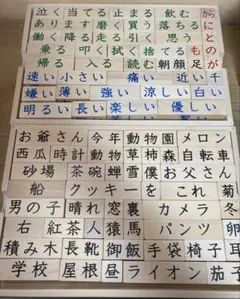 泣く 当てる 止まる 飲む
ます 磨く 買う 落ちる
働く 降る 走る 引く 思う
乗る 叩く 拭く 捨てる
帰る 入る 読む 朝顔 足
がにとのが
も
速い 小さい 痛い 近い 千
嫌い 薄い 強い 涼しい 白い
明るい 長い 楽しい 優しい
お爺さん 今年 動物園 メロン
西瓜 時計 動物 草 柿 森 自転車
砂場 茶碗 蝉 雪 僕 お父さん
船 クッキー を これ 菊
男の子 晴れ 窓 裏 カメラ 冬
右 紅茶 人 猿 鳥 パンツ 卵
積み木 長靴 御飯 手袋 椅子 耳
学校 屋根 昼 ライオン 茄子